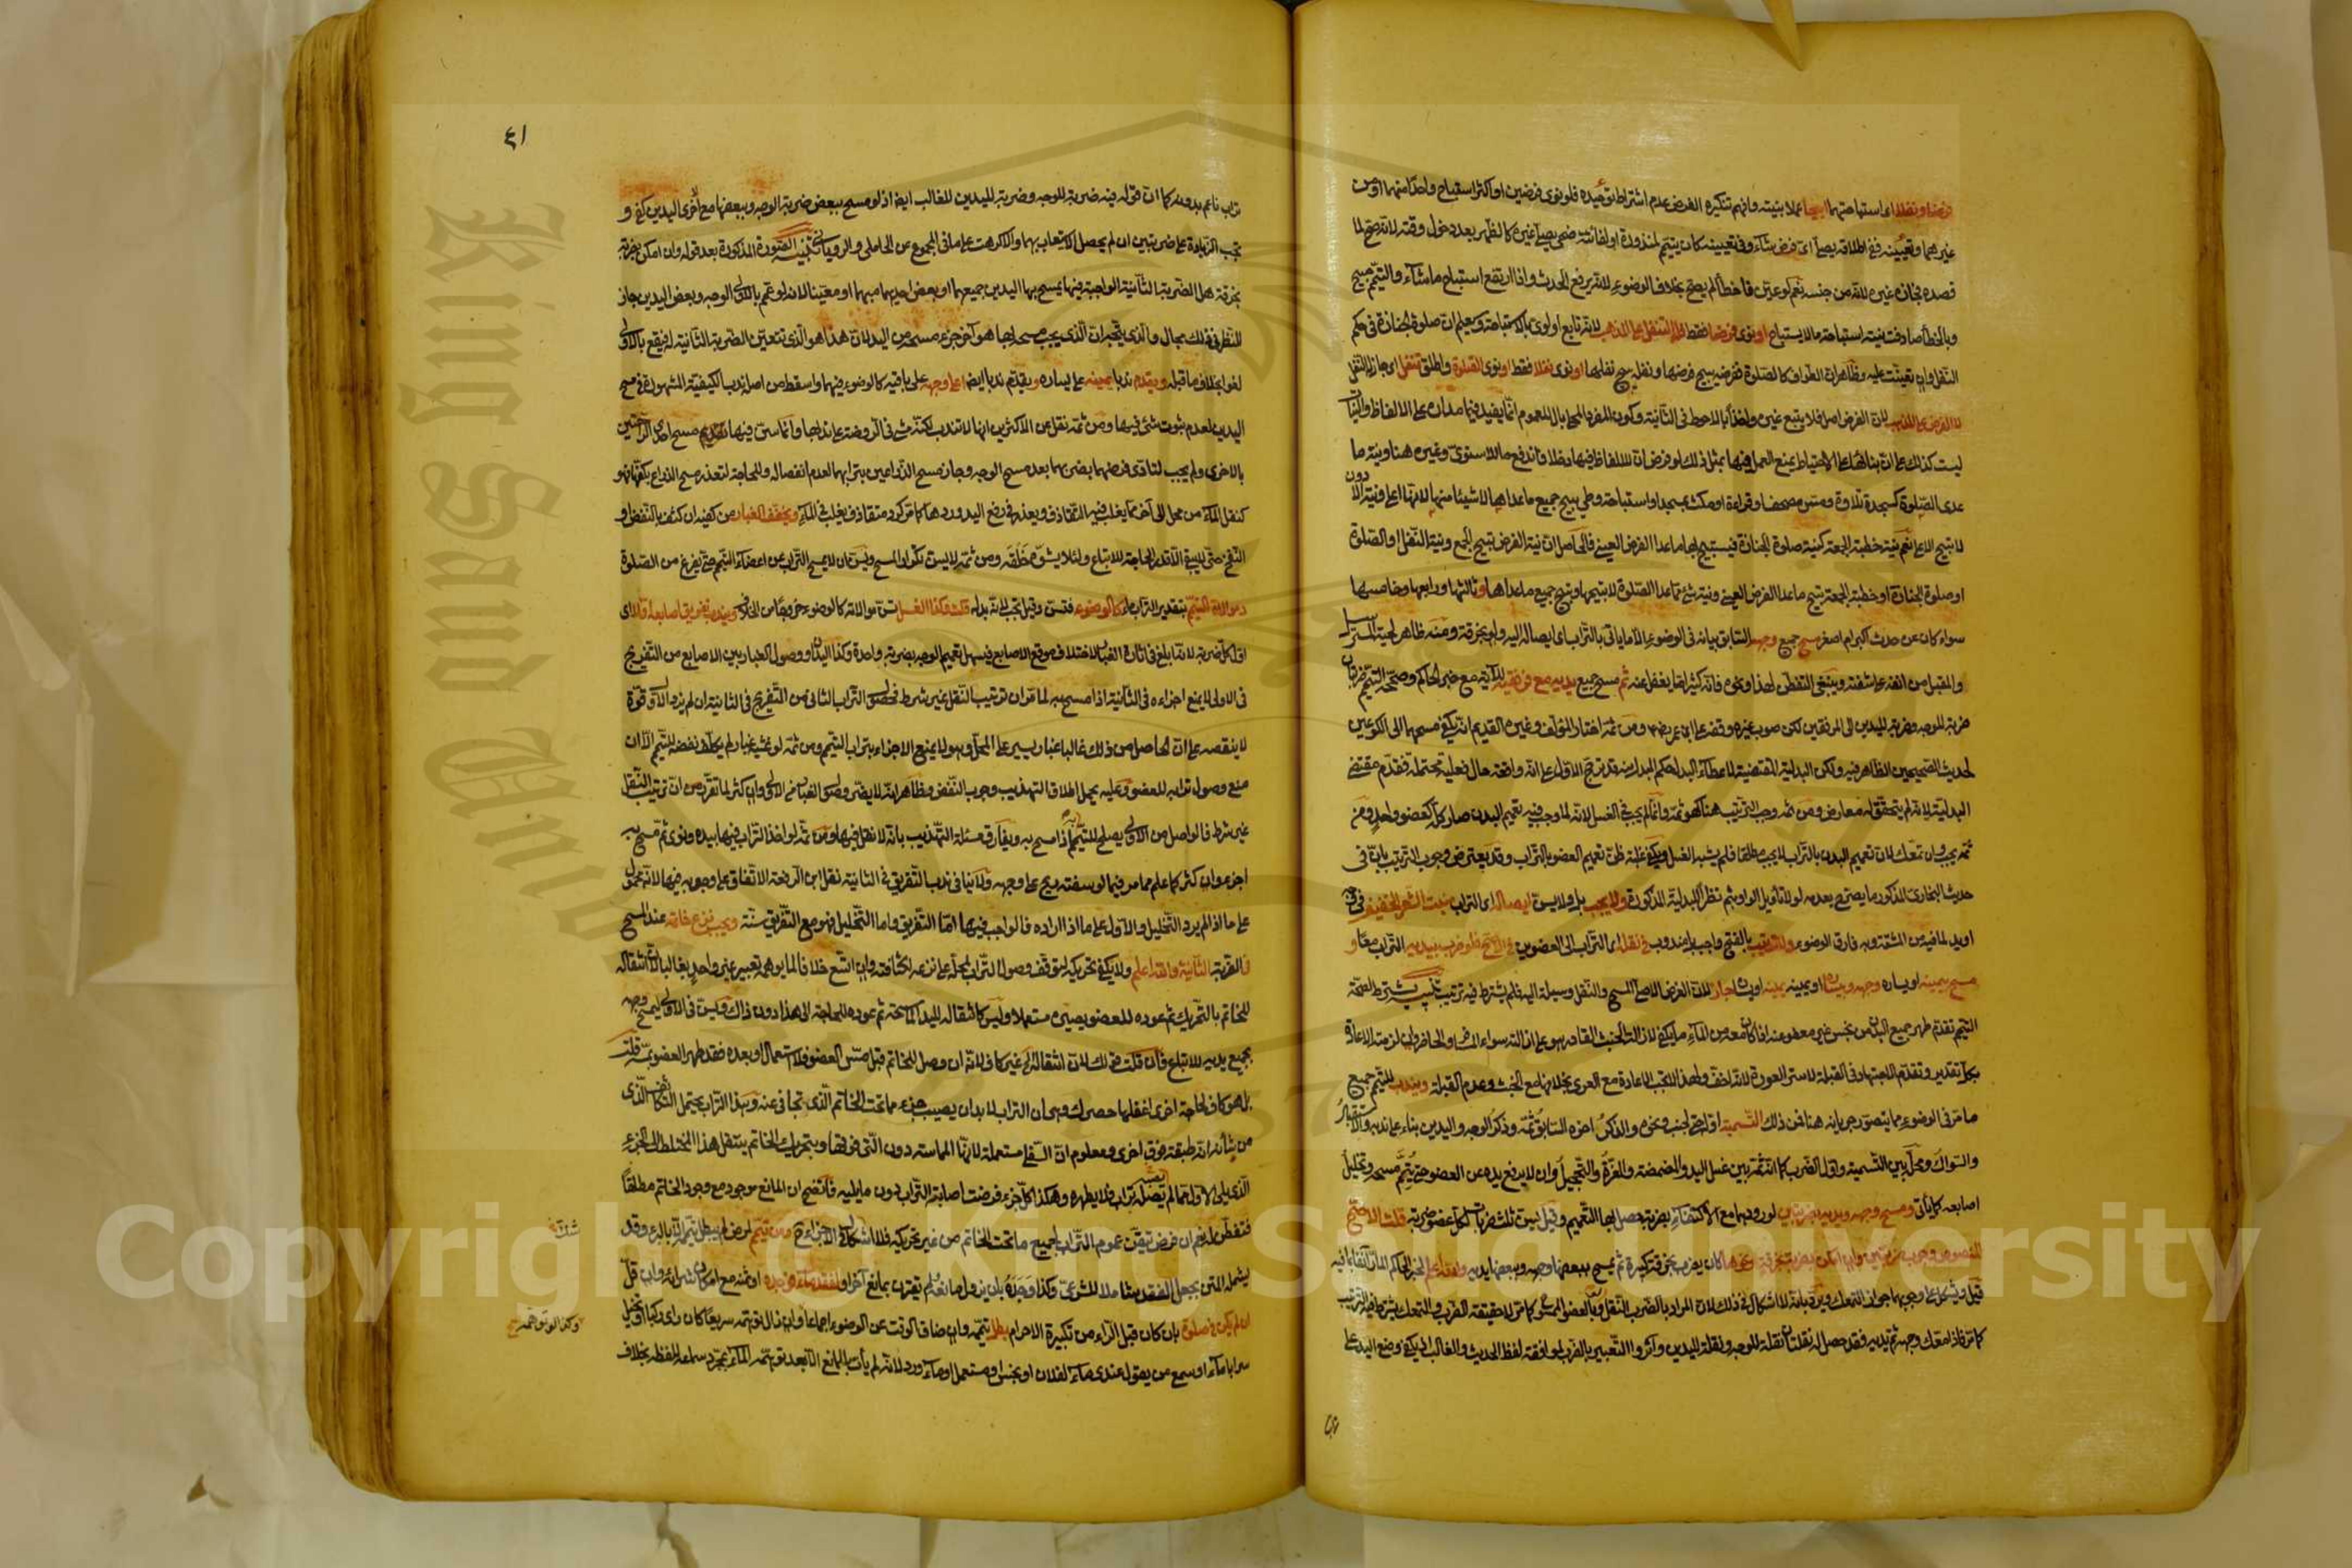 فرضا ونفلا اي استباحتهما ابيحا عملا بنيته وافهم تنكيره الفرض عدم اشتراط توحيده فلو نوى فرضين او اكثر استباح واحدا منهما او من
غيرهما وتعيينه ففي اطلاقه يصلي اي فرض شاء وفي تعيينه كان يتيمم لمنذورة او لفائتة ضحى يصلي غيره كالظهر بعد دخول وقته لانه صح لما
قصده فجاز غيره لانه من جنسه نعم لو عين فاخطأ لم يصح بخلاف الوضوء لانه يرفع الحدث واذا ارتفع استباح ما شاء والتيمم مبيح
وبالخطأ صادفت نيته استباحة ما لا يستباح او نوى فرضا فقط فله التنفل على المذهب لانه تابع اولوى بالاستباحة وبعلم ان صلوة الجنازة في حكم
النفل وان تعينت عليه وظاهر ان الطواف كالصلوة ففرضه يبيح فرضها ونفله يبيح نفلها او نوى نفلا فقط او نوى الصلوة واطلق تنفل اي جاز له النفل
لا الفرض على المذهب لان الفرض اصل فلا يتبع غيره واخذا بالاحوط في الثانية وكون المفرد المحلى بال للعموم انما يفيد فيما مداره على الالفاظ والنيات
ليست كذلك على ان بناءها على الاحتياط يمنع العمل فيها بمثل ذلك لو فرض ان للالفاظ فيها دخلا فاندفع ما للاسنوي وغيره هنا ونية ما
عدى الصلوة كسجدة تلاوة ومس مصحف او قراءة او مكث بمسجد او استباحة وطئ يبيح جميع ما عداها لا شيئا منها لانها اعلى فنية الادون
لا تبيح الاعلى نعم نية خطبة الجمعة كنية صلوة الجنازة فيستبيح بها ما عدا الفرض العيني فالحاصل ان نية الفرض تبيح الجمع ونية النفل او الصلوة
او صلوة الجنازة او خطبة الجمعة تبيح ما عدا الفرض العيني ونية شئ مما عدا الصلوة لا يبيحها ويبيح جميع ما عداها وثالثها ورابعها وخامسها
سواء كان عن حدث اكبر ام اصغر مسح جميع وجهه السابق بيانه في الوضوء الا ما ياتي بالتراب اي ايصاله اليه ولو بخرقة ومنه ظاهر لحيته المسترسل
والمقبل من انفه على شفته وينبغي التفطن لهذا ونحوه فانه كثيرا ما يغفل عنه ثم مسح جميع يديه مع مرفقيه للآية مع خبر الحاكم وصححه التيمم ضربتان
ضربة للوجه وضربة لليدين الى المرفقين لكن صوب غيره وقفه على ابن عمر رضي ومن ثمة اختار المؤلف وغيره القديم انه يكفي مسحهما الى الكوعين
لحديث الصحيحين الظاهر فيه ولكن البدلية المقتضية لاعطاء البدل حكم المبدل منه قد ترجح الاول على انه واقعة حال فعلية محتملة فقدم مقتضى
البدلية لانه لم يتحقق له معارض ومن ثمة وجب الترتيب هنا كهو ثمة وانما لم يجب في الغسل لانه لما وجب فيه تعميم البدن صار كل كعضو واحد ومن
ثمة يجب وان تمعك لان تعميم البدن بالتراب لا يجب مطلقا فلم يشبه الغسل ويكفي غلبة ظن تعميم العضو بالتراب وقد يعترض وجوب الترتيب بان في
حديث البخاري المذكور ما يصرح بعدمه لولا تاويل الواو بثم نظرا للبدلية المذكورة ولا يجب بل ولا يسن ايصاله اي التراب منبت الشعر الخفيف
لما فيه من المشقة وبه فارق الوضوء ولا ترتيب بالفتح واجب بل مندوب في نقله اي التراب الى العضوين في الاصح فلو ضرب بيديه التراب معا و
مسح بيمينه او يساره وجهه وبيساره او يمينه يمينه او يساره جاز لان الفرض الاصلي المسح والنقل وسيلة اليه فلم يشترط فيه ترتيب تنبيه يشترط لصحة
التيمم تقدم طهر جميع البدن من نجس غير معفو عنه
بكل تقدير وتقدم الاجتهاد في القبلة لا ستر العورة لانه اخف ولهذا لا تجب الاعادة مع العري بخلافها مع الخبث وعدم القبلة ويندب للتيمم جميع
ما مر في الوضوء مما يتصور جريانه هنا فمن ذلك التسمية اوله حتى لجنب ونحوه والذكر آخره السابق ثمة وذكر الوجه واليدين بناء على ندبه والاستقبال
والسواك ومحله بين التسمية واول الضرب كما انه ثمة بين غسل اليد والمضمضة والغرة والتحجيل وان لا يرفع يده عن العضو حتى يتم مسحه وتخليل
اصابعه كما يأتي ومسح وجهه ويديه بضربتين لورودهما مع الاكتفاء بضربة حصل بها التعميم وقيل يسن ثلث ضربات لكل عضو ضربة قلت الاصح
المنصوص وجوب ضربتين وان امكن بضربة بخرقة ونحوها كان يضرب بخرقة كبيرة ثم يمسح ببعضها وجهه وببعضها يديه والله اعلم لخبر الحاكم المار آنفا
قيل ويشكل على وجوبهما جواز التمعك ويرد بانه لا اشكال في ذلك لان المراد بالضرب النقل
كما مر فاذا معك وجهه ثم يديه فقد حصل له نقلتان نقلة للوجه ونقلة لليدين وآثروا التعبير بالضرب لموافقة لفظ الحديث والغالب اذ يكفي وضع اليد على
٤١
تراب ناعم بدونه كما ان قوله فيه ضربة للوجه وضربة لليدين للغالب ايضا اذ لو مسح ببعض ضربة الوجه وببعضها مع اخرى اليدين كفى و
تجب الزيادة على ضربتين ان لم يحصل الاستيعاب بهما والا كرهت على ما في المجموع عن المحاملي والروياني تنبيه الصورة المذكورة بعد قوله وان امكن بضربة
بخرقة هل الضربة الثانية الواجبة فيها يمسح بها اليدين جميعهما او بعض احديهما مبهما او معينا لانه لو عمم بالاولى الوجه وبعض اليدين جاز
للنظر في ذلك مجال والذي يتجه ان الذي يجب مسحه بها هو آخر جزء مسحه من اليد لان هذا هو الذي تتعين الضربة الثانية له فيقع بالاولى
لغوا بخلاف ما قبله ويقدم ندبا يمينه على يساره ويقدم ندبا ايضا اعلا وجهه على باقيه كالوضوء فيهما واسقط من اصله ندب الكيفية المشهورة في مسح
اليدين لعدم ثبوت شئ فيها ومن ثمة نقل عن الاكثرين انها لا تندب لكنه مشى في الروضة على ندبها وانما سن فيها تقديم مسح احدى الراحتين
بالاخرى ولم يجب لتادي فرضهما بضربهما بعد مسح الوجه وجاز مسح الذراعين بترابهما لعدم انفصاله وللحاجة لتعذر مسح الذراع بكفها فهو
كنقل الماء من محل الى آخر مما يغلب فيه التقاذف ويعذر في رفع اليد وردها كما مر كرد متقاذف يغلب في الماء ويخفف الغبار من كفيه ان كثف بالنفض او
النفخ حتى لا يبقى الا قدر الحاجة للاتباع ولئلا يشوه خلقه ومن ثمة لا يسن تكرار المسح ويسن ان لا يمسح التراب عن اعضاء التيمم حتى يفرغ من الصلوة
وموالاة التيمم بتقدير التراب ماء كالوضوء فتسن وقيل تجب لانه بدله قلت وكذا الغسل تسن موالاته كالوضوء خروجا من الخلاف ويندب تفريق اصابعه اولا اي
اول كل ضربة لانه ابلغ في اثارة الغبار لاختلاف موقع الاصابع فيسهل تعميم الوجه بضربة واحدة وكذا اليدان ووصول الغبار بين الاصابع من التفريج
في الاولى لا يمنع اجزاءه في الثانية اذا مسح به لما مر ان ترتيب النقل غير شرط فحصول التراب الثاني من التفريج في الثانية ان لم يزد الاول قوة
لا ينقصه على ان الحاصل من ذلك غالبا غبار يسير على المحل وهو لا يمنع الاجزاء بتراب التيمم ومن ثمة لو غشيه غبار لم يكلف نفضه للتيمم الا ان
منع وصول ترابه للعضو وعليه يحمل اطلاق التهذيب وجوب النفض وظاهر انه لا يضر وصول الغبار في الاولى وان كثر لما تقرر من ان ترتيب النقل
غير شرط فالواصل من الاولى يصلح للتيمم به اذا مسح به ويفارق مسئلة التهذيب بانه لا نقل فيها ومن ثمة لو اخذ التراب فيها بيده ونوى ثم مسح به
اجزء وان كثر كما علم مما مر فيما لو سفته ريح على وجهه ولا ينافي ندب التفريق في الثانية نقل ابن الرفعة الاتفاق على وجوبه فيها لانه محمول
على ما اذا لم يرد التخليل والاول على ما اذا اراده فالواجب فيها اما التفريق واما التخليل فهو مع التفريق سنة ويجب نزع خاتمه عند المسح
في الضربة الثانية والله اعلم ولا يكفي تحريكه لتوقف وصول التراب لمحله على نزعه لكثافته وان اتسع خلافا لما يوهمه تعبير غير واحد بغالبا لان انتقاله
للخاتم بالتحريك ثم عوده للعضو يصيره مستعملا وليس كانتقاله لليد الماسحة ثم عوده للحاجة الى هذا دون ذاك ويسن في الاولى ليمسح وجهه
بجميع يديه للاتباع فان قلت
بل هو كاف لحاجة اخرى اغفلها حصره وهي ان التراب لا بد ان يصيب جزء مما تحت الخاتم الذي تجافى عنه وهذا التراب يحتمل التكاثف الذي
من شأنه انه طبقة فوق اخرى ومعلوم ان السفلى مستعملة لانها المماسة دون التي فوقها وبتحريك الخاتم ينتقل هذا المختلط الى الجزء
الذي يلي الاول مما لم يصله تراب فلا يطهره وهكذا كل جزء فرضت اصابة التراب دون ما يليه فاتضح ان المانع موجود مع وجود الخاتم مطلقا
فتفطن له نعم ان فرض تيقن عموم التراب لجميع ما تحت الخاتم من غير تحريكه فلا اشكال في الاجزاء ح ومن تيمم لمرض لم يبطل تيممه الا بالبرء وقد
يشمله المتن بجعل الفقد شاملا للشرعي وكذا وجده بان يزول مانعه ولم يقترن بمانع آخر او لفقد ماء فوجده او ثمنه مع امكان شرائه وان قل
ان لم يكن في صلوة بان كان قبل الراء من تكبيرة الاحرام بطل تيممه وان ضاق الوقت عن الوضوء اجماعا وان زال توهمه سريعا كان راى ركبا او تخيل
سرابا ماء او سمع من يقول عندي ماء لفلان او نجس او مستعمل او ماء ورد لانه لم يأت بالمانع الا بعد توهمه الماء بمجرد سماعه للفظه بخلاف
وكذا لو توهمه
Copyright © King Saud University
King Saud University